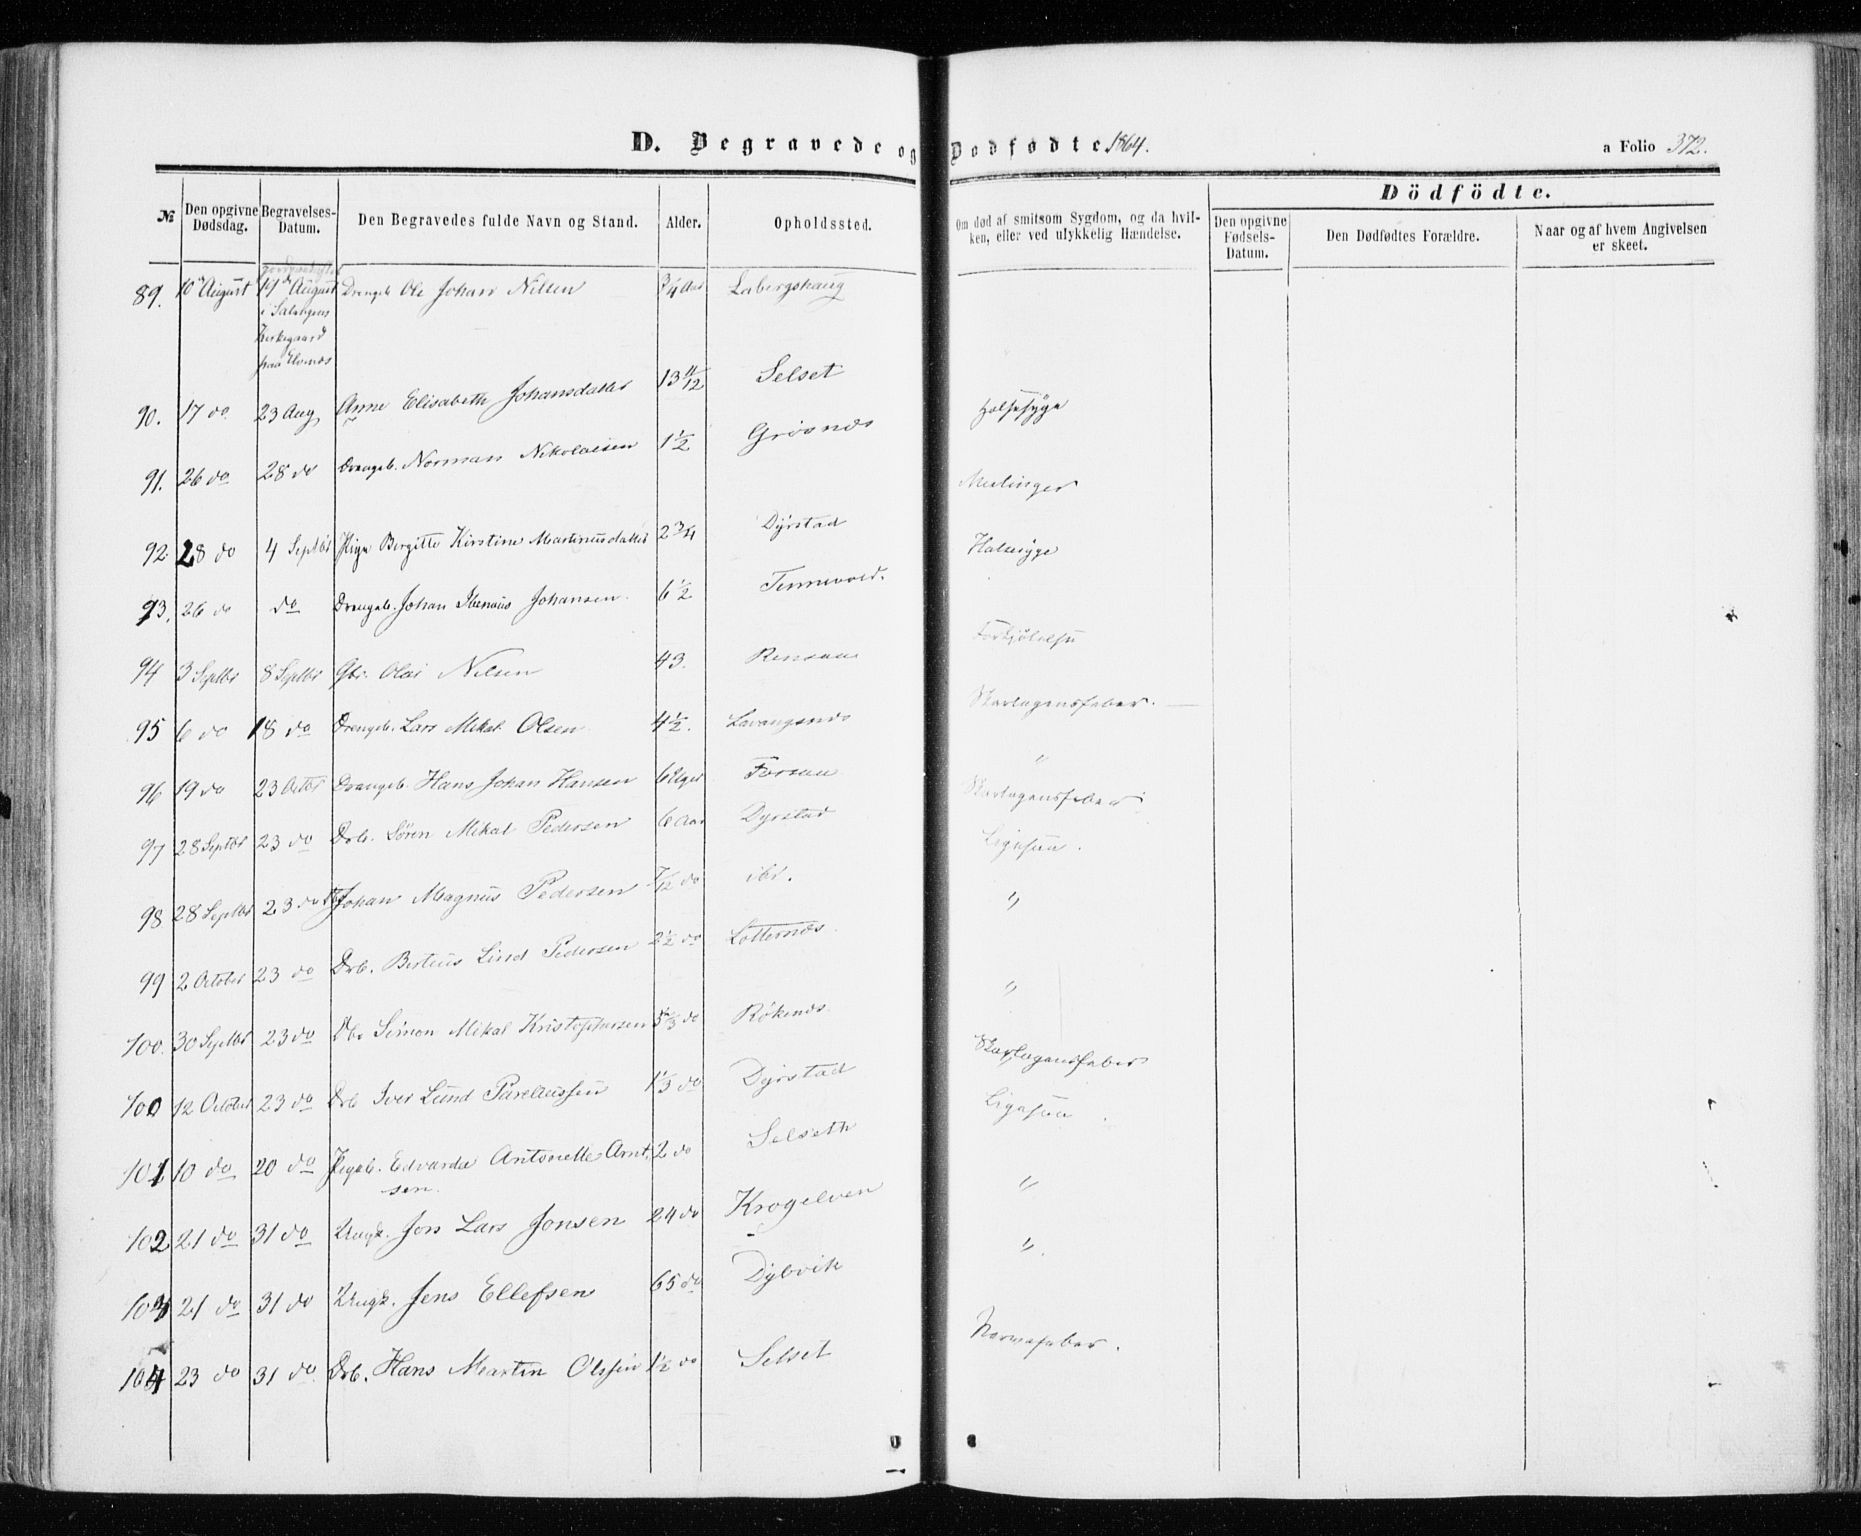 D. Begravede og Dodfødte 1864.
a Folio 372.
№
Den opgivne Dødsdag.
Begravelses-Datum.
Den Begravedes fulde Navn og Stand.
Alder.
Opholdssted.
Om død af smitsom Sygdom, og da hvilken, eller ved ulykkelig Hændelse.
Dödfödte.
Den opgivne Fødsels-Datum.
Den Dødfødtes Forældre.
Naar og af hvem Angivelsen er skeet.
89. 10 August 14 August Drengeb Ole Johan Nilsen Labergshaug
i Salangens
Kirkegaard
paa Elvenæs
90. 17 do 23 Aug Anne Elisabeth Johansdatter 13 11/12 Selset Halssyge
91. 26 do 28 do Drengeb. Norman Nikolaisen 1 1/2 Grøsnæs
92 28 do 4 Septbr Pige Bergitte Kirstine Martinusdatter 2 3/4 Dyrstad Halssyge
93. 26 do do Drengeb. Johan Johansen. 6 1/2 Tennevold. Forkjølelse
94 3 Septbr 8 Septbr Gbr. Olai Nilsen 43. Rensaa Skarlagensfeber.
95 6 do 18 do Drengeb. Lars Mikal Olsen 4 1/2. Lavangsnæs "
96 19 do 23 Octbr Drengeb. Hans Johan Hansen 6 Uger Forsaa Skarlagensfeber
97 28 Septbr 23 do Drb. Søren Mikal Pedersen 6 Aar Dyrstad Ligesaa.
98 28 Septbr 23 do Johan Magnus Pedersen 7/12 do ibd. "
99 2 October 23 do Drb. Berteus Lind Pedersen 2 1/2 do Lotternæs. "
100. 30 Septbr 23 do Db Simon Mikal Kristophersen do Røkenæs. Skarlagensfeber
100 12 October 23 do Drb Iver Lund Parelius­sen 1 1/3 do Dyrstad Ligesaa.
101 10 do 20 do Pigeb. Edvarda Antonette Arnt- 2 do Selseth "
sen.
102 21 do 31 do Ungk. Jon Lars Jonsen 24 do Krogelven "
103 21 do 31 do Ungk. Jens Ellefsen 65 do Dybvik Nervefeber.
104 23 do 31 do Drb. Hans Martin Olssen 1 1/2 do Selset